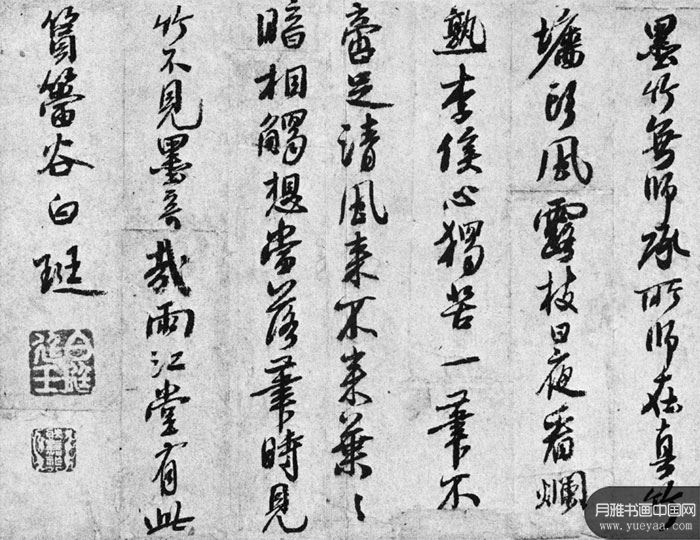 墨竹無師承所師在真竹
墻頭風露枝日夜看爛
熟李侯心獨苦一筆不
啻足清風來不來葉〻
暗相觸想當落筆時見
竹不見墨奇哉兩江堂有此
篔簹谷白珽
月雅书画中国网
www.yueyaa.com